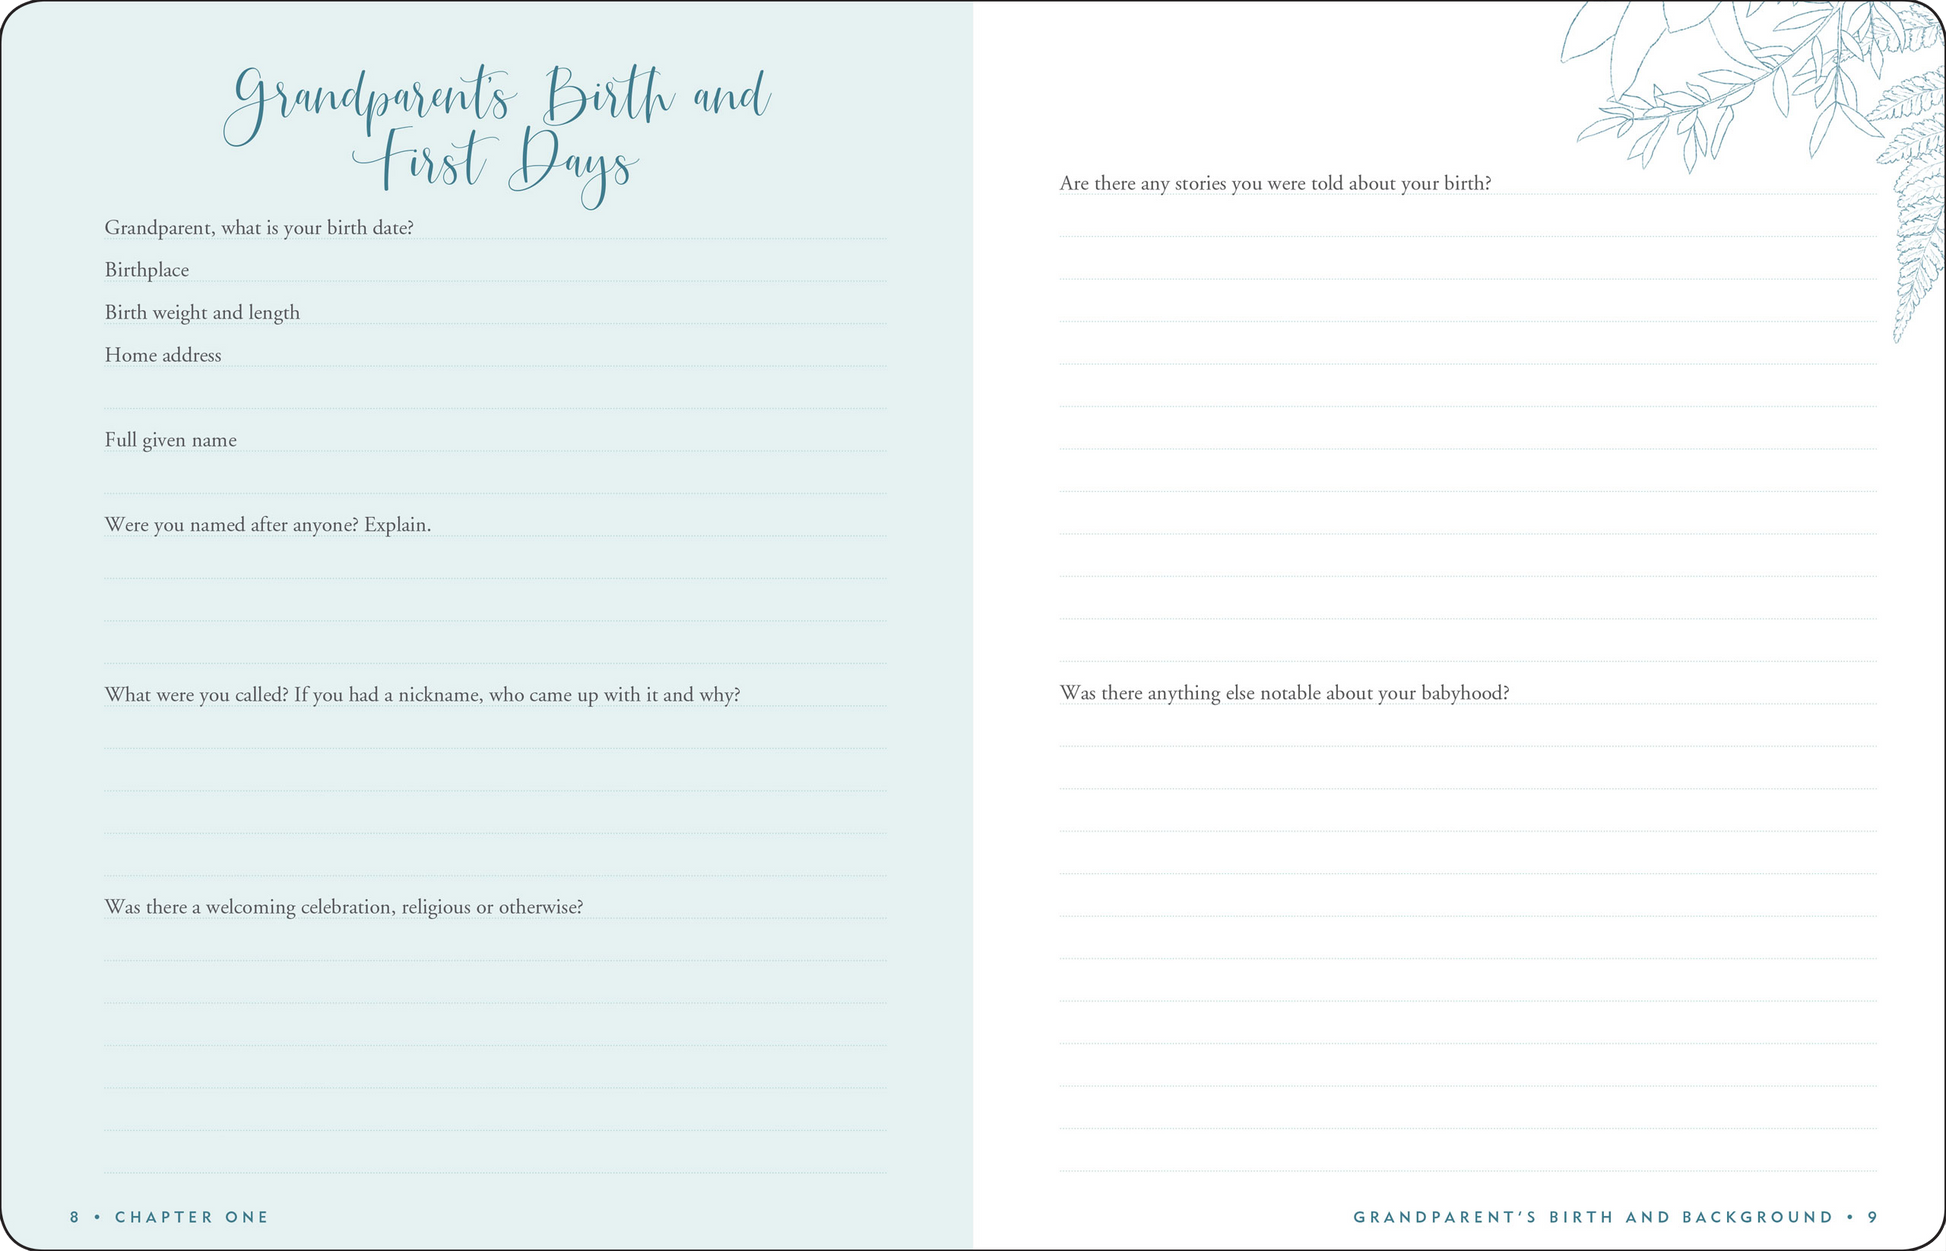 Grandparent's Birth and
First Days
Grandparent, what is your birth date?
Birthplace
Birth weight and length
Home address
Full given name
Were you named after anyone? Explain.
What were you called? If you had a nickname, who came up with it and why?
Was there a welcoming celebration, religious or otherwise?
8 • CHAPTER ONE
Are there any stories you were told about your birth?
Was there anything else notable about your babyhood?
GRANDPARENT'S BIRTH AND BACKGROUND • 9